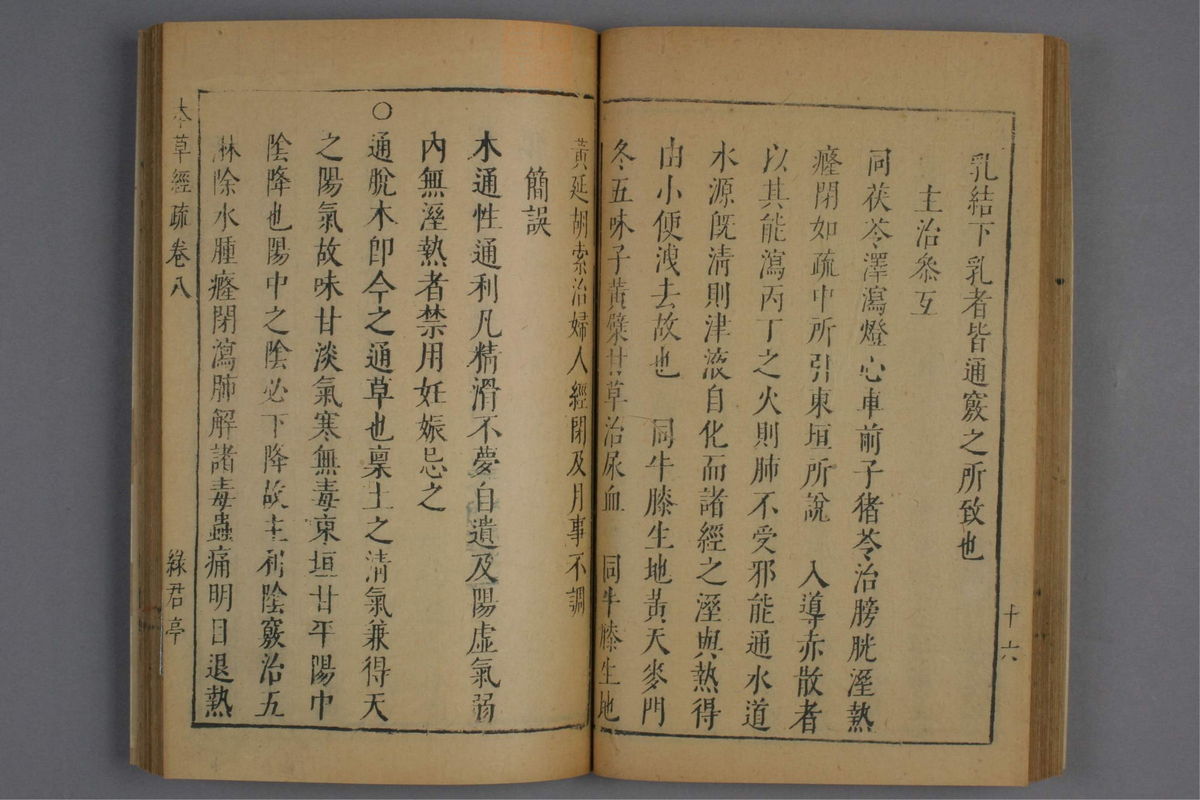 乳結下乳者皆通竅之所致也
主治參互
同茯苓澤瀉燈心車前子猪苓治膀胱溼熱
癃閉如疏中所引東垣所說　入導赤散者
以其能瀉丙丁之火則肺不受邪能通水道
水源既清則津液自化而諸經之溼與熱得
由小便洩去故也　同牛膝生地黃天麥門
冬五味子黃蘗甘草治尿血　同牛膝生地
十六
黃延胡索治婦人經閉及月事不調
簡誤
木通性通利凡精滑不夢自遺及陽虛氣弱
內無溼熱者禁用妊娠忌之
○通脫木即今之通草也稟土之清氣兼得天
之陽氣故味甘淡氣寒無毒東垣甘平陽中
陰降也陽中之陰必下降故主利陰竅治五
淋除水腫癃閉瀉肺解諸毒蟲痛明目退熱
本草經疏卷八
綠君亭